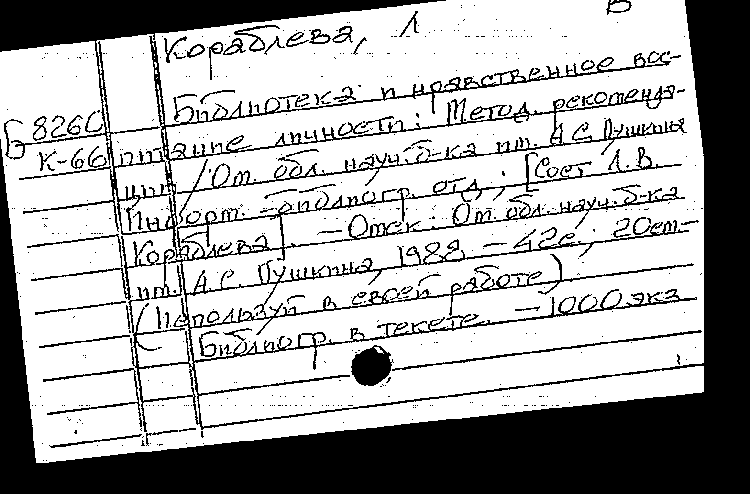 Кораблева, Л В
Библиотека и нравственное вос-
Б826С питание личности: Метод. рекоменда-
К-66 ции / Ом. обл. науч. б-ка им. А.С. Пушкина
Информ.-библиогр. отд.; [Сост Л.В.
Кораблева]. - Омск: Ом. обл. науч. б-ка
им. А.С. Пушкина, 1988 - 42с.; 20см-
(Используй в своей работе)
Библиогр. в тексте. - 1000 экз